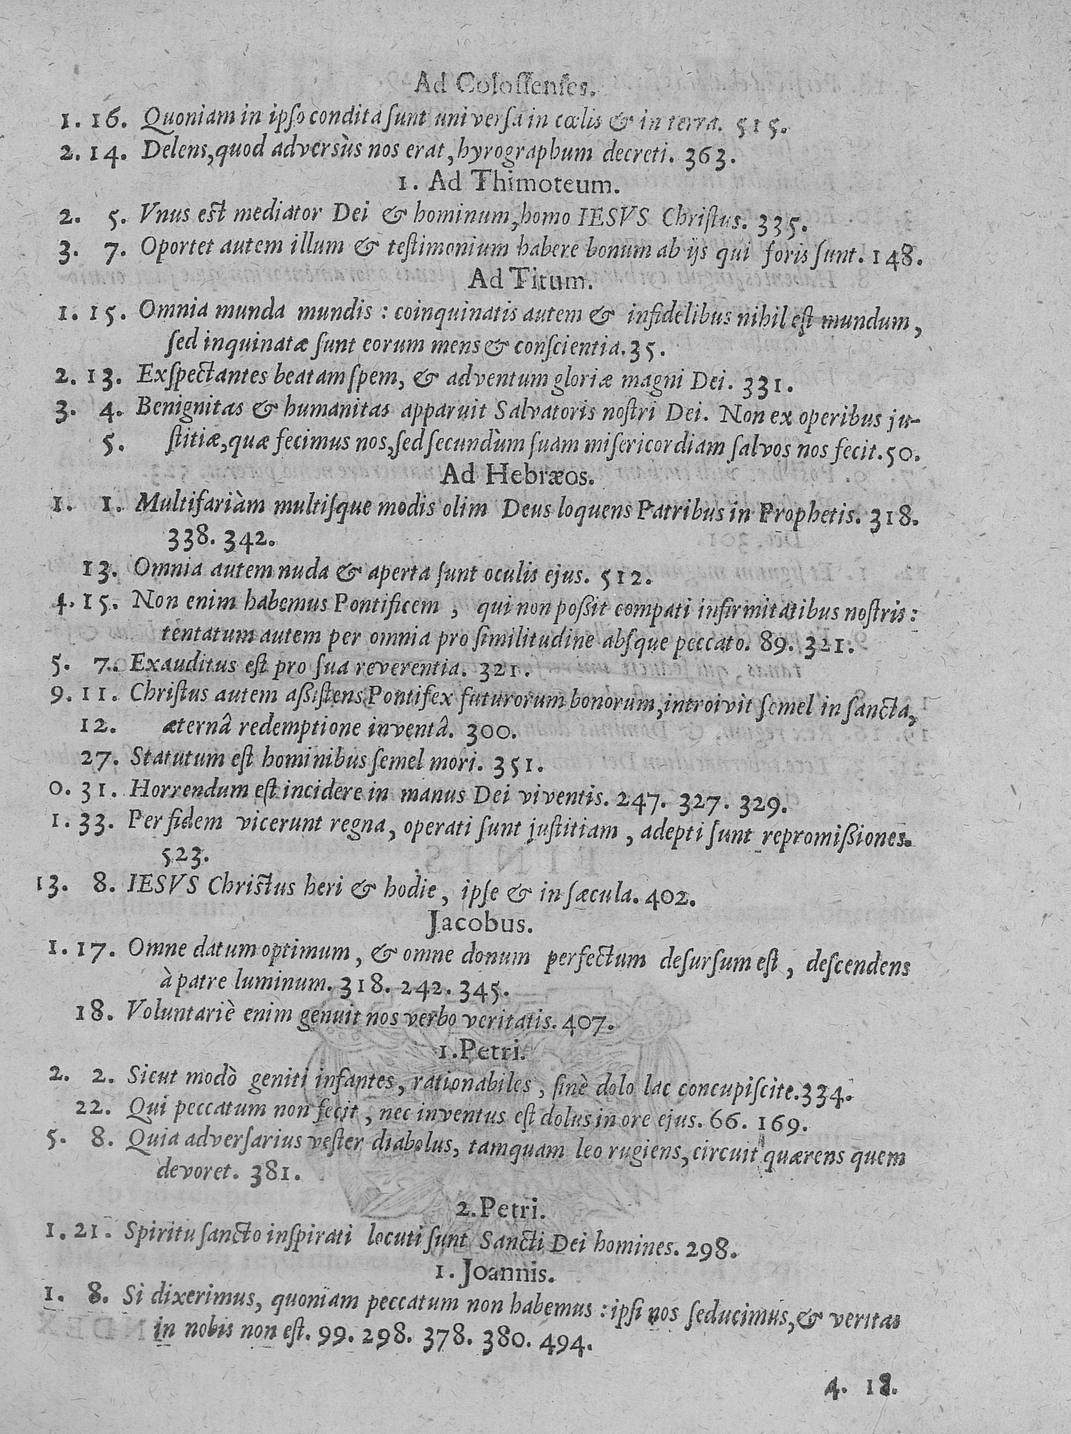 Ad Colossenses.
1. 16. Quoniam in ipso condita sunt universa in cœlis & in terra. 515.
2. 14. Delens, quod adversùs nos erat, hyrographum decreti. 363.
1. Ad Thimoteum.
2. 5. Vnus est mediator Dei & hominum, homo IESVS Christus. 335.
3. 7. Oportet autem illum & testimonium habere bonum ab ijs qui foris sunt. 148.
Ad Titum.
1. 15. Omnia munda mundis : coinquinatis autem & infidelibus nihil est mundum,
sed inquinatæ sunt eorum mens & conscientia. 35.
2. 13. Exspectantes beatam spem, & adventum gloriæ magni Dei. 331.
3. 4. Benignitas & humanitas apparuit Salvatoris nostri Dei. Non ex operibus ju-
5. stitiæ, quæ fecimus nos, sed secundùm suam misericordiam salvos nos fecit. 50.
Ad Hebræos.
1. 1. Multifariàm multisque modis olim Deus loquens Patribus in Prophetis. 318.
338. 342.
13. Omnia autem nuda & aperta sunt oculis ejus. 512.
4. 15. Non enim habemus Pontificem , qui non poßit compati infirmitatibus nostris :
tentatum autem per omnia pro similitudine absque peccato. 89. 321.
5. 7. Exauditus est pro sua reverentia. 321.
9. 11. Christus autem aßistens Pontifex futurorum bonorum, introivit semel in sancta,
12. æternâ redemptione inventâ. 300.
27. Statutum est hominibus semel mori. 351.
0. 31. Horrendum est incidere in manus Dei viventis. 247. 327. 329.
1. 33. Per fidem vicerunt regna, operati sunt justitiam , adepti sunt repromißiones.
523.
13. 8. IESVS Christus heri & hodie, ipse & in sæcula. 402.
Jacobus.
1. 17. Omne datum optimum, & omne donum perfectum desursum est , descendens
à patre luminum. 318. 242. 345.
18. Voluntariè enim genuit nos verbo veritatis. 407.
1. Petri.
2. 2. Sicut modò geniti infantes, rationabiles , sinè dolo lac concupiscite. 334.
22. Qui peccatum non fecit , nec inventus est dolus in ore ejus. 66. 169.
5. 8. Quia adversarius vester diabolus, tamquam leo rugiens, circuit quærens quem
devoret. 381.
2. Petri.
1. 21. Spiritu sancto inspirati locuti sunt Sancti Dei homines. 298.
1. Joannis.
1. 8. Si dixerimus, quoniam peccatum non habemus : ipsi nos seducimus, & veritas
in nobis non est. 99. 298. 378. 380. 494.
4. 18.